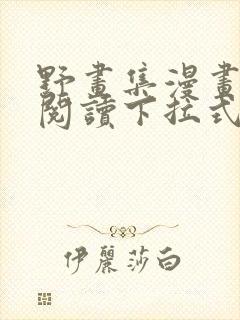 野畫集漫畫
閱讀下拉式
伊麗莎白